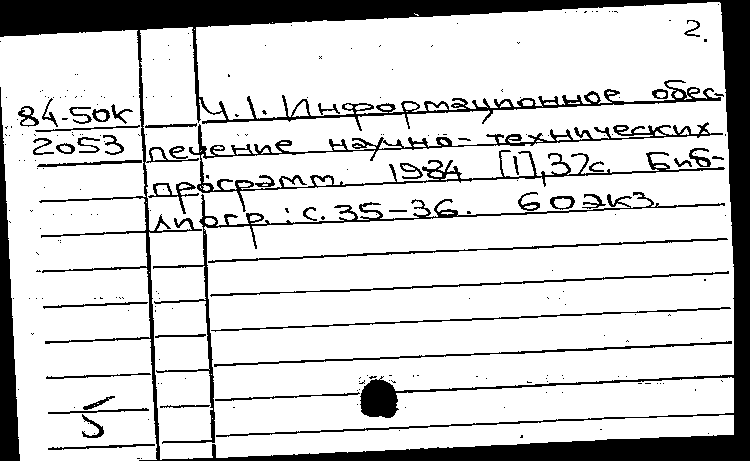 2.
84-50к Ч.1. Информационное обес-
2053 печение научно-технических
программ. 1984 [1], 37с. Биб-
лиогр.: с. 35-36. 60экз.
5